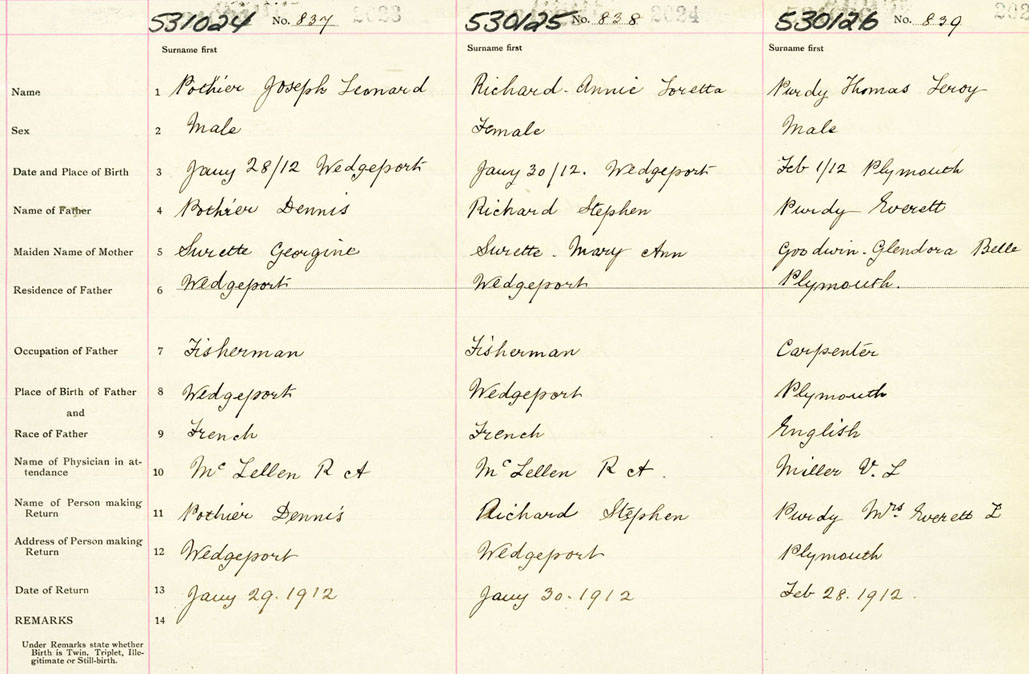 531024 No. 837 2023 530125 No. 838 2024 530126 No. 839 202
Surname first Surname first Surname first
Name 1 Pothier Joseph Leonard Richard - Annie Loretta Purdy Thomas Leroy
Sex 2 Male Female Male
Date and Place of Birth 3 Jany 28/12 Wedgeport Jany 30/12. Wedgeport Feb 1/12 Plymouth
Name of Father 4 Pothier Dennis Richard Stephen Purdy Everett
Maiden Name of Mother 5 Surette Georgine Surette - Mary Ann Goodwin - Glendora Belle
Residence of Father 6 Wedgeport Wedgeport Plymouth.
Occupation of Father 7 Fisherman Fisherman Carpenter
Place of Birth of Father 8 Wedgeport Wedgeport Plymouth
and
Race of Father 9 French French English
Name of Physician in at-
tendance 10 McLellen R A McLellen R A. Miller V. L
Name of Person making
Return 11 Pothier Dennis Richard Stephen Purdy Mrs Everett L
Address of Person making
Return 12 Wedgeport Wedgeport Plymouth
Date of Return 13 Jany 29. 1912 Jany 30. 1912 Feb 28. 1912.
REMARKS 14
Under Remarks state whether
Birth is Twin, Triplet, Ille-
gitimate or Still-birth.